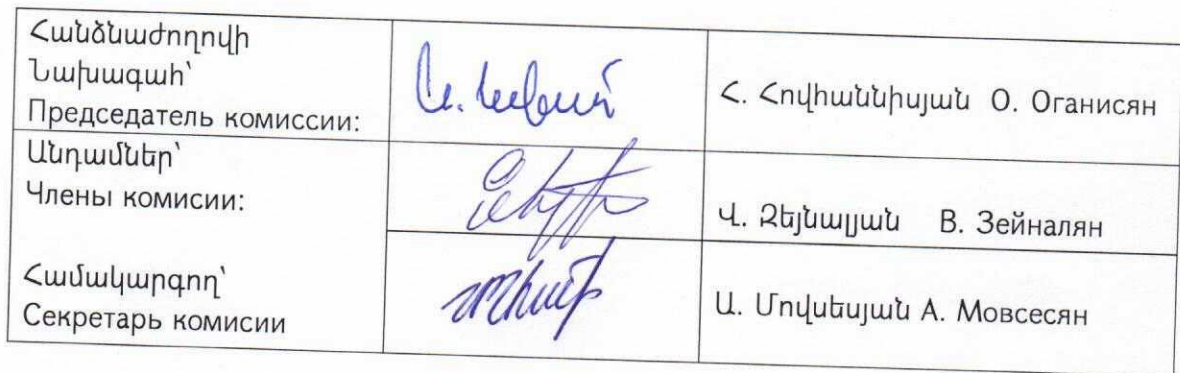 Հանձնաժողովի
Նախագահ՝
Председатель комиссии:
Հ. Հովհաննիսյան О. Оганисян
Անդամներ՝
Члены комисии:
Վ. Զեյնալյան В. Зейналян
Համակարգող՝
Секретарь комисии
Ա. Մովսեսյան А. Мовсесян